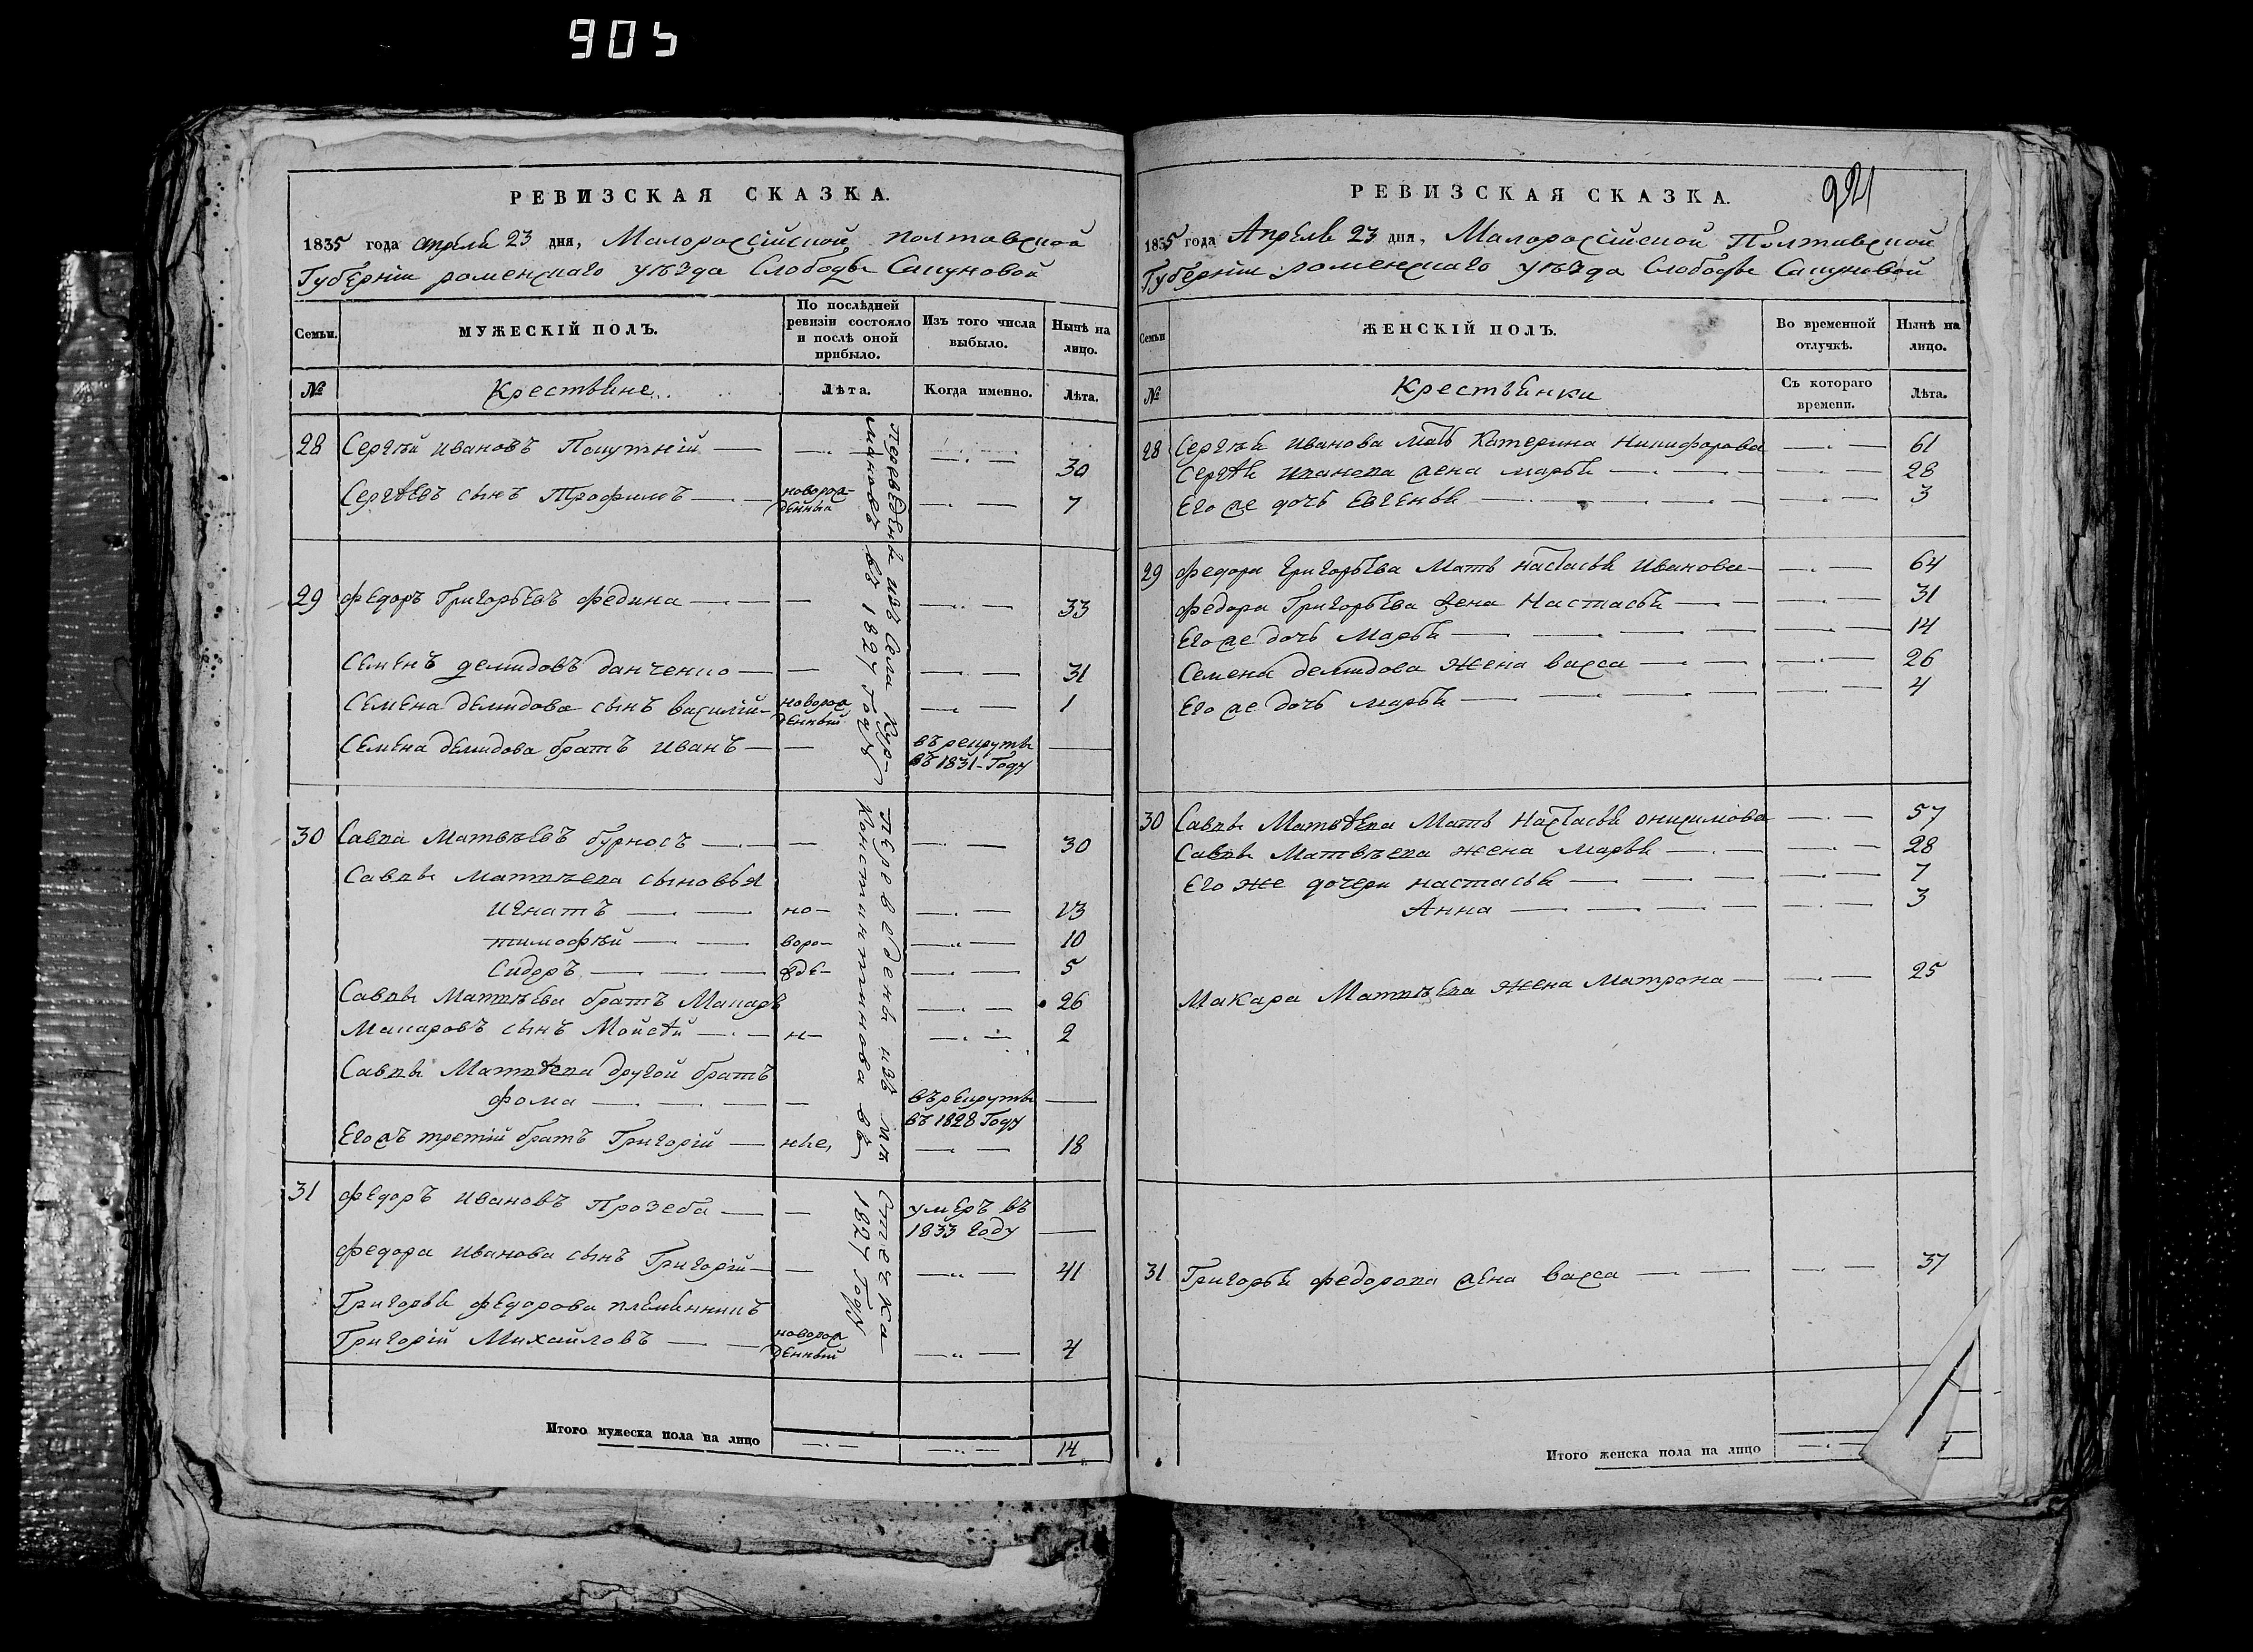 905
РЕВИЗСКАЯ СКАЗКА.
1835 года апреля 23 дня, Малороссійской Полтавской
Губерніи роменскаго уѣзда Слободы Сакуновой
Семьи.
МУЖЕСКІЙ ПОЛЪ.
По послѣдней ревизіи состояло и послѣ оной прибыло.
Изъ того числа выбыло.
Нынѣ на лицо.
№
Крестьяне
Лѣта.
Когда именно.
Лѣта.
28 Сергѣй Ивановъ 30
Сергѣевъ сынъ Трофимъ новорож-
денный 7
29 Федоръ Григорьевъ Федина 33
Семенъ Демидовъ Данченко 31
Семена Демидова сынъ Василій новорож
денный 1
Семена Демидова братъ Иванъ въ рекруты
въ 1831 Году
30 Савва Матвѣевъ Бурносъ 30
Саввы Матвѣева сыновья
Игнатъ но- 13
Тимофѣй воро- 10
Сидоръ жде- 5
Саввы Матвѣева братъ Макаръ 26
Макаровъ сынъ Мойсѣй н- 2
Саввы Матвѣева другой братъ
Фома въ рекруты
въ 1828 Году
Его жъ третій братъ Григорій ные, 18
31 Федоръ Ивановъ Прозеба умеръ въ
1833 Году
Федора Иванова сынъ Григорій 41
Григорья Федорова племянникъ
Григорій Михайловъ новорож
денный 4
переведены изъ села Кур-
мановъ въ 1827 Году
переведены изъ мѣ
стечка
Константинова въ
1827 Году
Итого мужеска пола на лицо 14
921
РЕВИЗСКАЯ СКАЗКА.
1835 года Апреля 23 дня, Малороссійской Полтавской
Губерніи роменскаго уѣзда Слободы Сакуновой
Семьи
ЖЕНСКІЙ ПОЛЪ.
Во временной отлучкѣ.
Нынѣ на лицо.
№
Крестьянки
Съ котораго времени.
Лѣта.
28 Сергѣя Иванова мать Катерина Никифорова 61
Сергѣя Иванова жена Марья 28
Его же дочь Евгенья 3
29 Федора Григорьева Мать Настасья Иванова 64
Федора Григорьева жена Настасья 31
Его же дочь Марья 14
Семена Демидова жена Васса 26
Его же дочь Марья 4
30 Саввы Матвѣева Мать Настасья Онисимова 57
Саввы Матвѣева жена Марья 28
Его же дочери Настасья 7
Анна 3
Макара Матвѣева жена Матрона 25
31 Григорья Федорова жена Васса 37
Итого женска пола на лицо